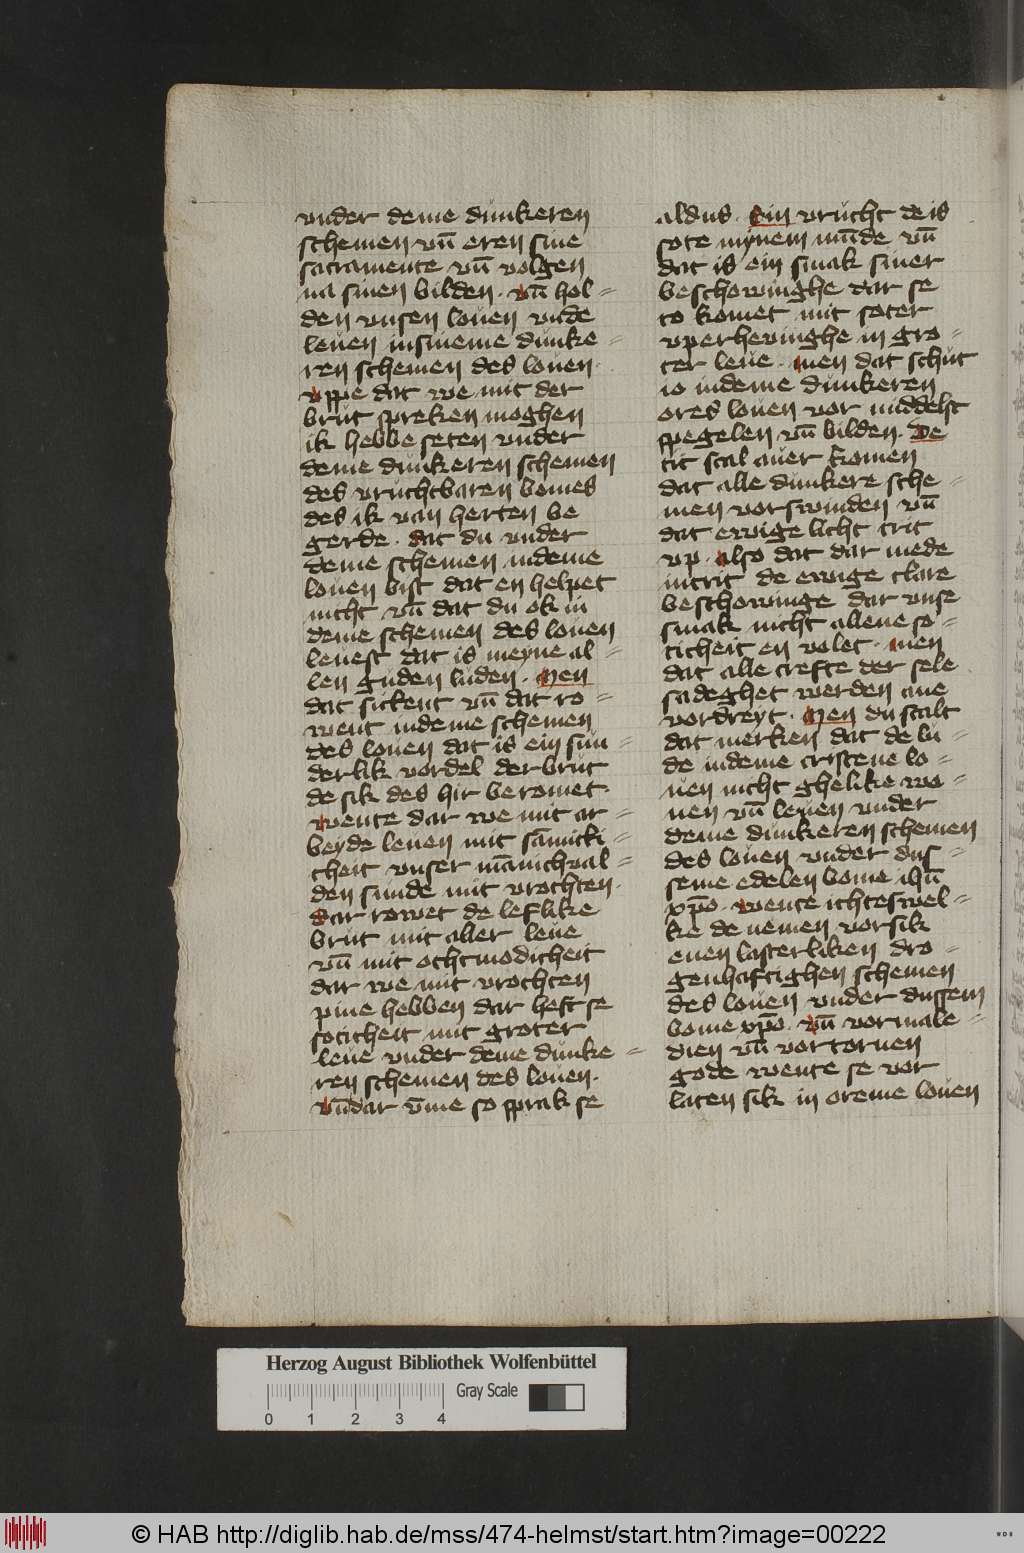 vnder deme dunkeren
schemen vn̄ eren sine
sacramente vn̄ volgen
na sinen bilden · vn̄ hol=
den vnsen louen vnde
leuen insineme dunke=
ren schemen des louen ·
vppe dat we mit der
brut spreken moghen
ik hebbe seten vnder
deme dunkeren schemen
des vruchtbaren bomes
des ik van herten be
gerde · dat du vnder
deme schemen indeme
louen bist dat en helpet
nicht vn̄ dat du ok in
deme schemen des louen
leuest dat is meyne al=
len guden luden · Men
dat sickent vn̄ dat ro=
went indeme schemen
des louen dat is ein sun=
derlik vordel der brut
de sik des hir beromet
wente dar we mit ar=
beyde leuen mit sānicki=
cheit vnser mānichual=
den sunde mit vrochten ·
dar rowet de leflike
brut mit aller leue
vn̄ mit othmodicheit
dar we mit vrochten
pine hebben dar heft se
soticheit mit groter
leue vnder deme dunke=
ren schemen des louen ·
vn̄dar v̄me so sprak se
aldus · Ein vrucht de is
sote mynem mūde vn̄
dat is ein smak siner
beschowinghe dar se
to komet mit soter
vperheuinghe in gro=
ter leue · men dat schut
io indeme dunkeren
ores louen vor middelst
spegelen vn̄ bilden · De
tit scal auer komen
dat alle dunkere sche=
men vorswinden vn̄
dat ewige licht trit
vp · also dat dar mede
intrit de ewige clare
beschowinge dar vnse
smak nicht allene so=
ticheit en volet · men
dat alle crefte der sele
sadeghet werden ane
vordreyt · Men du scalt
dat merken dat de lu=
de indeme cristene lo=
uen nicht ghelike wo=
nen vn̄ leuen vnder
deme dunkeren schemen
des louen vnder dus=
seme edelen bome ihū
xp̄o · wente ichteswel=
ke de nemen vorsik
enen lasterliken dro=
genhaftighen schemen
des louen vnder dussem
bome xp̄o · vn̄ vormale=
dien vn̄ vortornen
gode wente se vor
laten sik in oreme louen
Herzog August Bibliothek Wolfenbüttel
Gray Scale
0 1 2 3 4
© HAB http://diglib.hab.de/mss/474-helmst/start.htm?image=00222